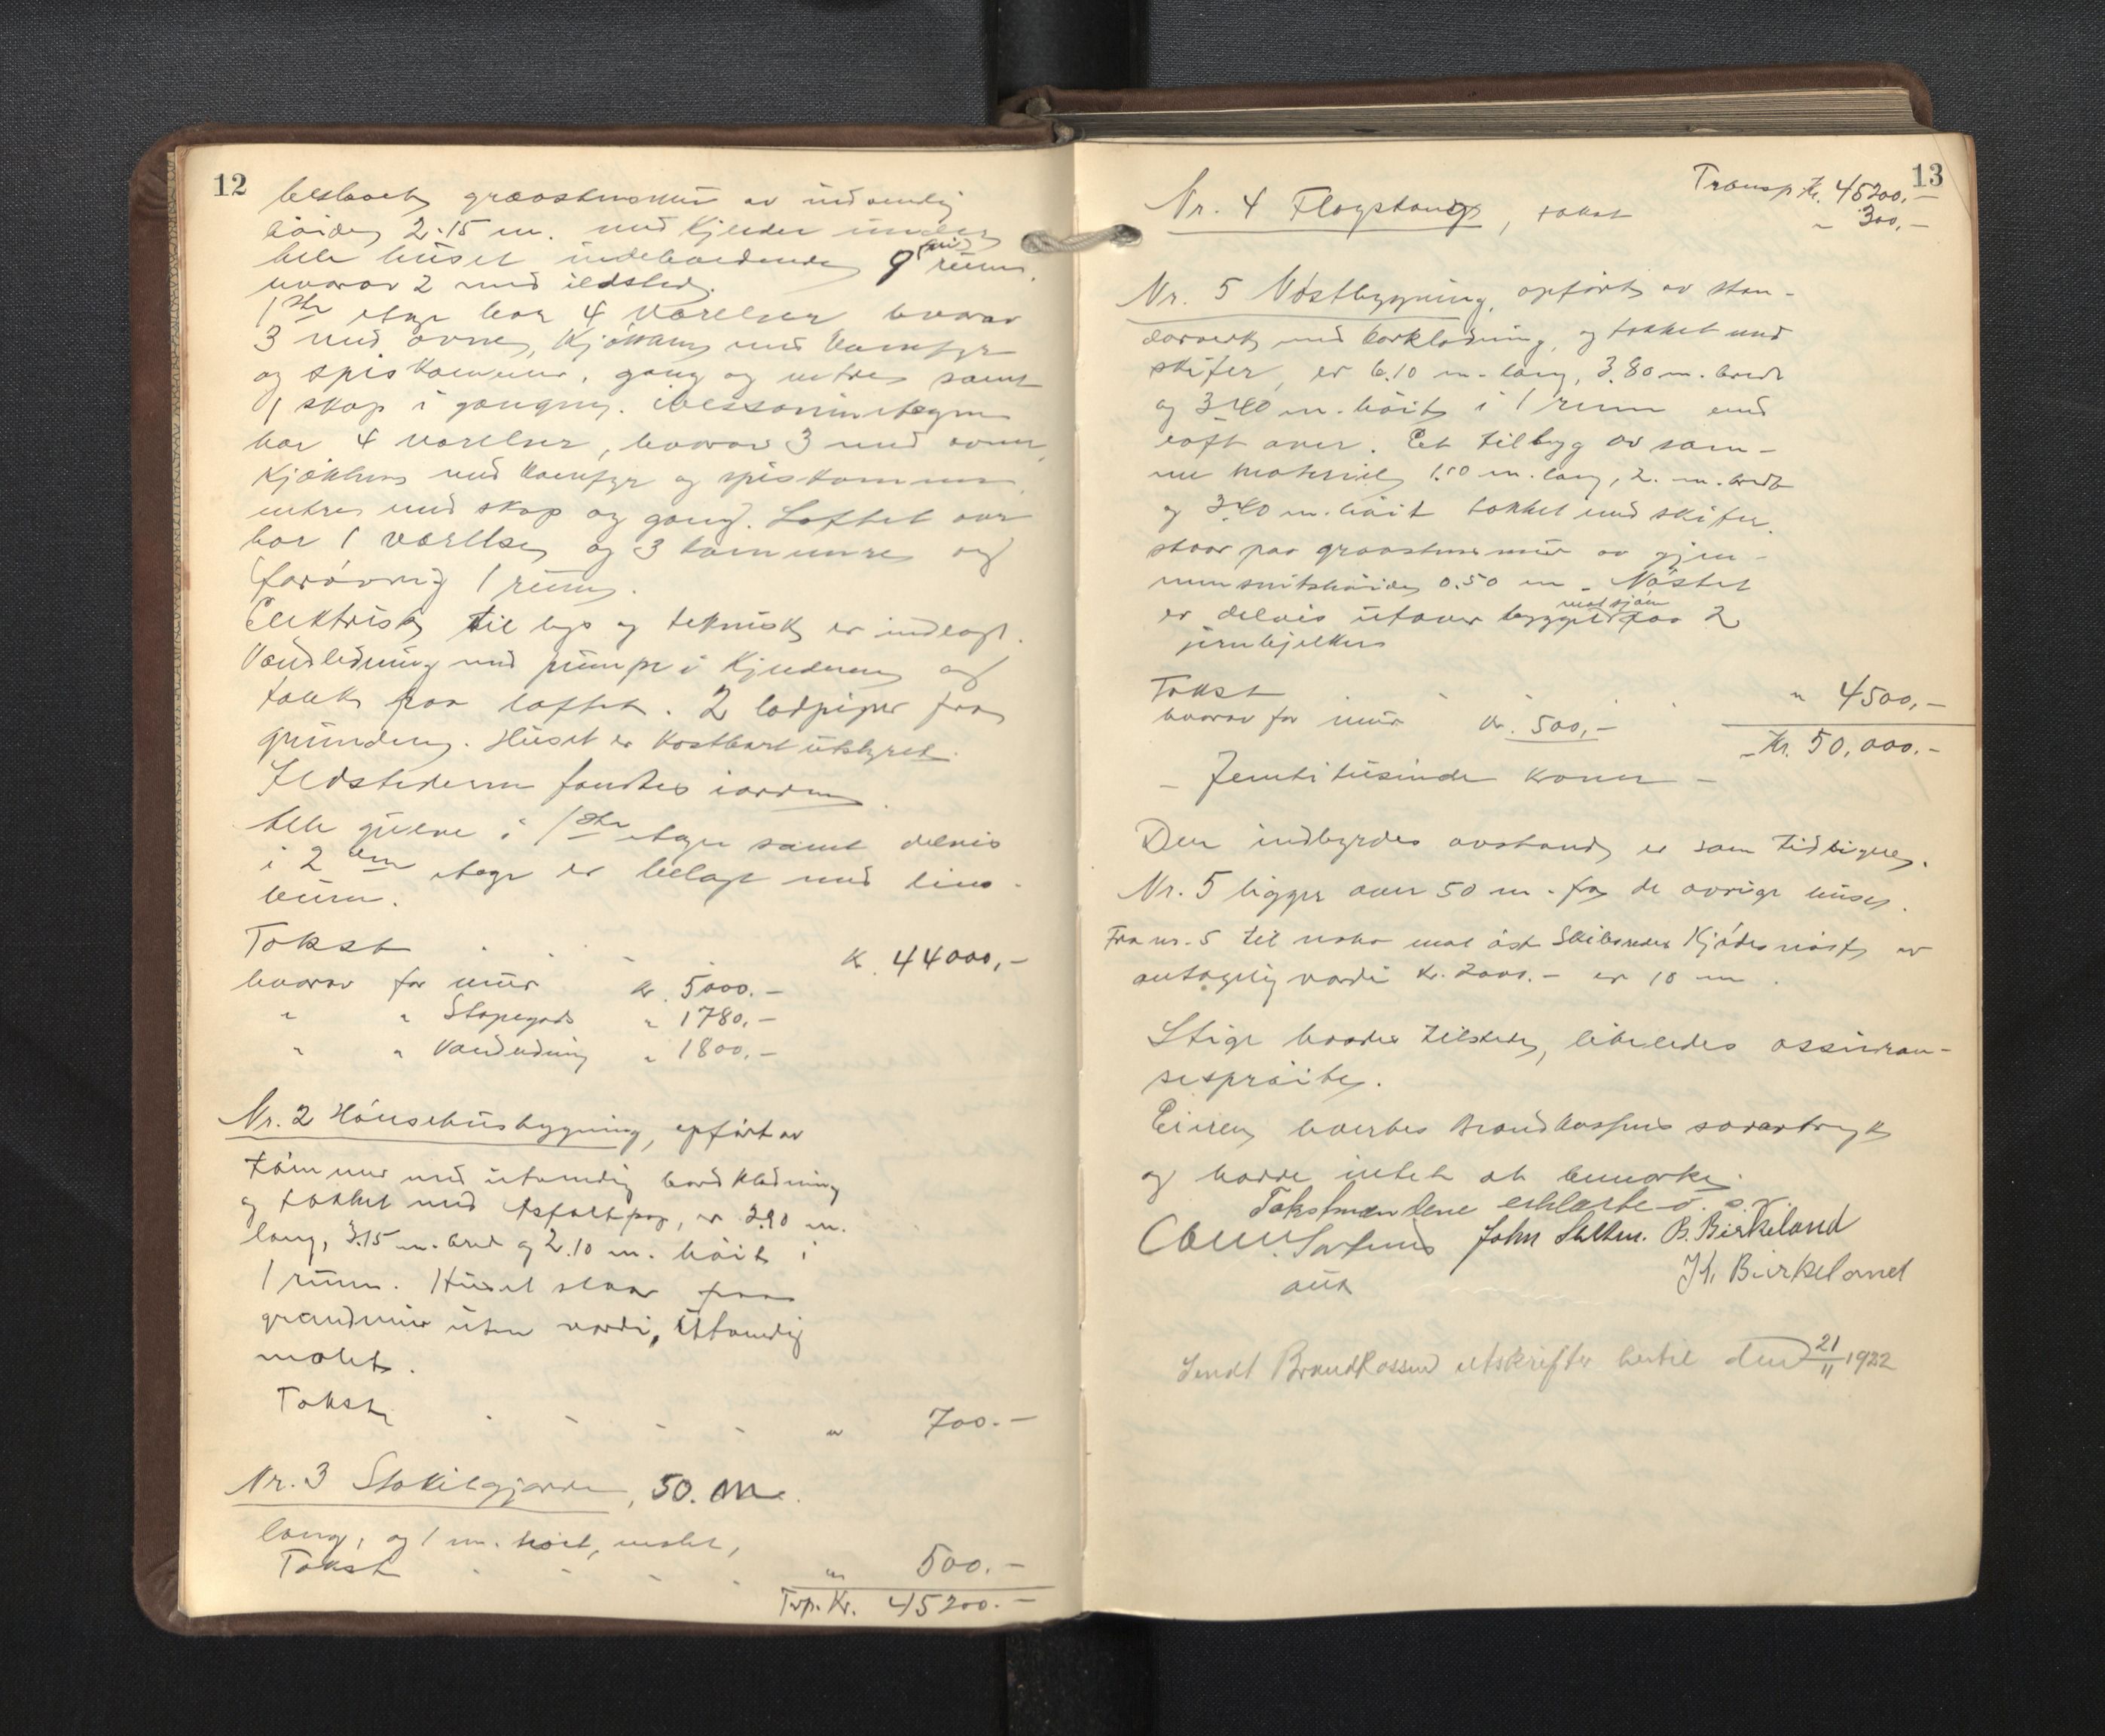 12
graastensmur av indvendig
høide 2.15 m. med kjelder under
hele huset indeholdende 9 rum,
hvorav 2 med ildsted.
1ste etage har 4 værelser hvorav
3 med ovne, Kjøkken med Komfyr
og spiskammer, gang og entre samt
1 skap i gangen.
har 4 værelser, hvorav 3 med ovner,
Kjøkken med Komfyr og spiskammer,
entre med skap og gang. Loftet over
har 1 værelse og 3 kammere og
forøvrig 1 rum.
Elektrisk til lys og teknisk er indlagt.
Vandledning med pumpe i Kjelderen og
tank paa loftet. 2 lodpiper fra
grunden. Huset er kostbart utstyret.
Ildstederne fandtes iorden.
Alle gulve i 1ste etage samt delvis
i 2den etage er belagt med lino-
leum.
Takst Kr. 44000,-
hvorav for mur Kr. 5000.-
" " Støpegods " 1780,-
" " Vandledning " 1800,-
Nr. 2 Hønsehusbygning, opført av
tømmer med utvendig bordklædning
og tækket med Asfaltpap, er 3.90 m.
lang, 3.15 m. bred og 2.10 m. høit i
1 rum. Huset staar paa
grundmur uten værdi, Utvendig
malet.
Takst " 700.-
Nr. 3 Stakitgjærde, 50. m.
lang, og 1 m. høit, malet,
Takst " 500.-
Trp. Kr. 45200.-
13
Transp. Kr. 45200.-
Nr. 4 Flagstang, takst " 300,-
Nr. 5 Nøstbygning, opført av stan-
darverk med bordklædning, og tækket med
skifer, er 6.10 m. lang, 3.80 m. bredt
og 3.40 m. høit i 1 rum med
loft over. Et tilbyg av sam-
me materiel, 1.50 m. lang, 2. m. bredt
og 3.40 m. høit tækket med skifer.
staar paa graastensmur av gjen-
nemsnitshøide 0.50 m. Nøstet
er delvis utover bygget mot sjøen paa 2
jernbjelker
Takst " 4500,-
hvorav for mur Kr. 500,-
Kr. 50,000.-
- Femtitusinde kroner -
Den indbyrdes avstand er som tidligere.
Nr. 5 ligger over 50 m. fra de øvrige huse.
Fra nr. 5 til nabo mot øst Skibsreder Kjødes nøst av
antagelig værdi kr. 2000.- er 10 m.
Stige havdes tilstede, likeledes assuran-
sesprøite.
Eieren hverves Brandkassens særavtryk
og hadde intet at bemerke.
Takstmændene erklærte o. s. v.
John B. Birkeland
Birkeland
Sendt Brandkassen utskrifter hertil den 21/11 1922